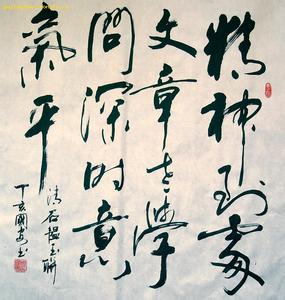 精神到處
文章老學
問深時意
氣平
清石韞玉聯
丁亥國